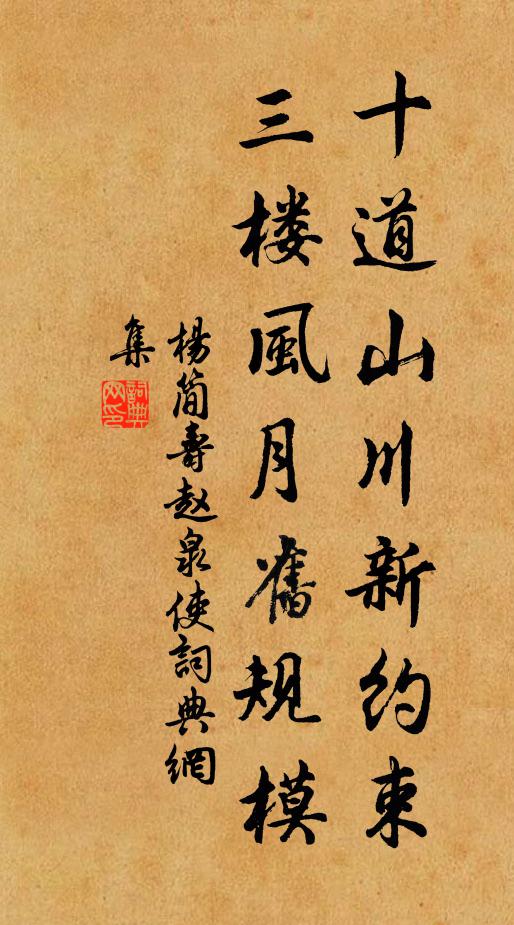 十道山川新約束
三楼風月舊規模
楊简壽赵泉使詞典網
集
詞典
网印